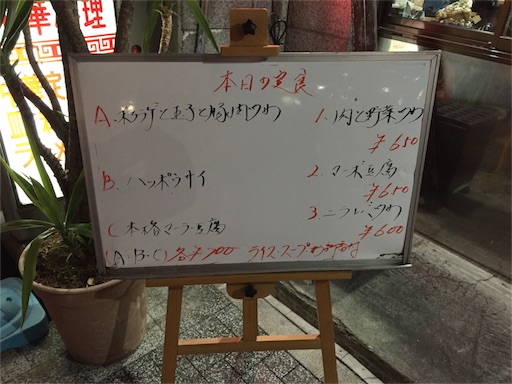 華
理
本日の定食
A. キクラゲと玉子と豚肉いため
1. 肉と野菜いため
¥650
B. ハッポウサイ
2. マーボ豆腐
¥650
C 本格マーラー豆腐
3. ニラレバいため
¥600
(A・B・C) 各¥700 ライス・スープお新香付